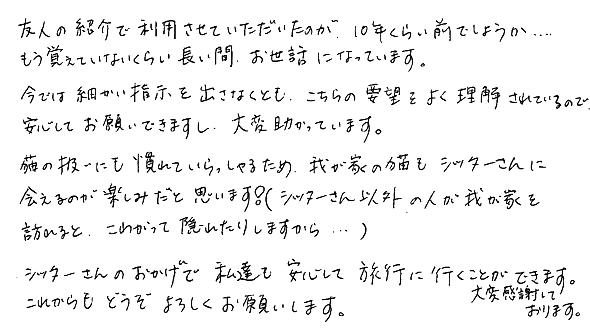 友人の紹介で利用させていただいたのが、10年くらい前でしょうか….
もう覚えていないくらい長い間、お世話になっています。
今では細かい指示を出さなくとも、こちらの要望をよく理解されているので、
安心してお願いできますし、大変助かっています。
猫の扱いにも慣れていらっしゃるため、我が家の猫もシッターさんに
会えるのが楽しみだと思います?(シッターさん以外の人が我が家を
訪れると、こわがって隠れたりしますから…)
シッターさんのおかげで私達も安心して旅行に行くことができます。
これからもどうぞよろしくお願いします。
大変感謝して
おります。